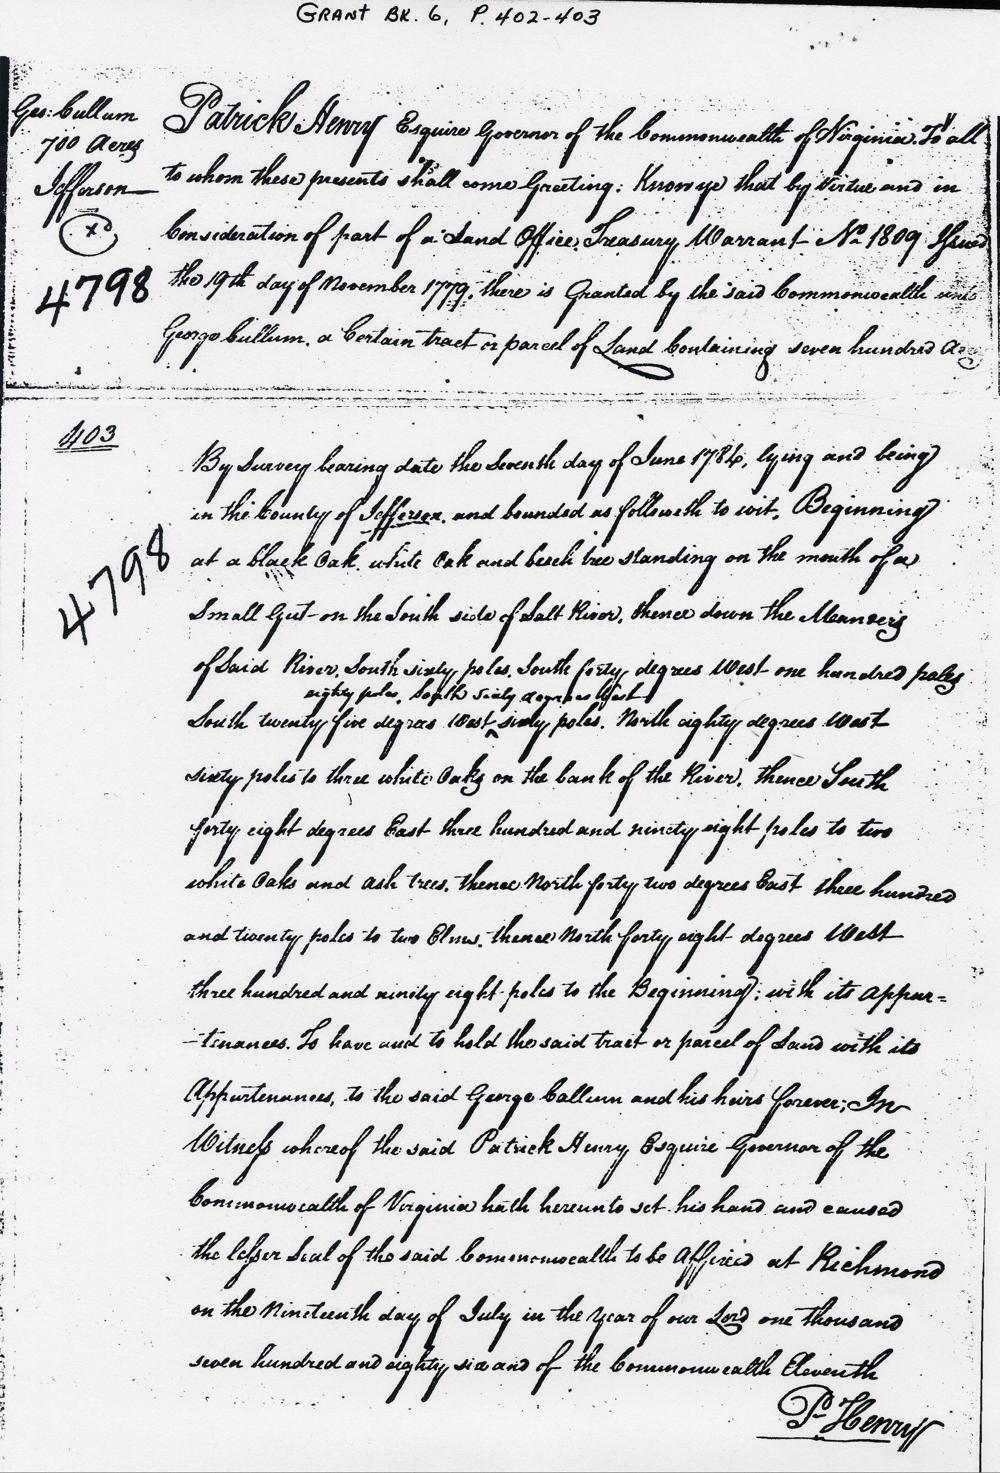 GRANT BK. 6, P. 402-403
Geo: Cullum
700 Acres
Jefferson
xd
4798
Patrick Henry Esquire Governor of the Commonwealth of Virginia. To all
to whom these presents shall come Greeting: Know ye that by Virtue and in
Consideration of part of a Land Office Treasury Warrant No. 1809 Issued
the 19th day of November 1779, there is Granted by the said Commonwealth unto
George Cullum, a Certain tract or parcel of Land Containing seven hundred Acres
403
4798
By Survey bearing date the Seventh day of June 1784, lying and being
in the County of Jefferson, and bounded as followeth to wit, Beginning
at a black Oak, white Oak and beech tree standing on the mouth of a
Small Gut on the South side of Salt River, thence down the Meanders
of Said River, South sixty poles, South forty degrees West one hundred poles
eighty poles, South Sixty degrees West
South twenty five degrees West ^ sixty poles, North eighty degrees West
sixty poles to three white Oaks on the bank of the River, thence South
forty eight degrees East three hundred and ninety eight poles to two
white Oaks and ash trees, thence North forty two degrees East three hundred
and twenty poles to two Elms, thence North forty eight degrees West
three hundred and ninety eight poles to the Beginning; with its appur=
-tenances. To have and to hold the said tract or parcel of Land with its
Appurtenances, to the said George Cullum and his heirs forever; In
Witness whereof the said Patrick Henry Esquire Governor of the
Commonwealth of Virginia hath hereunto set his hand and caused
the lesser Seal of the said Commonwealth to be affixed at Richmond
on the Nineteenth day of July in the Year of our Lord one thousand
seven hundred and eighty six and of the Commonwealth Eleventh
P. Henry